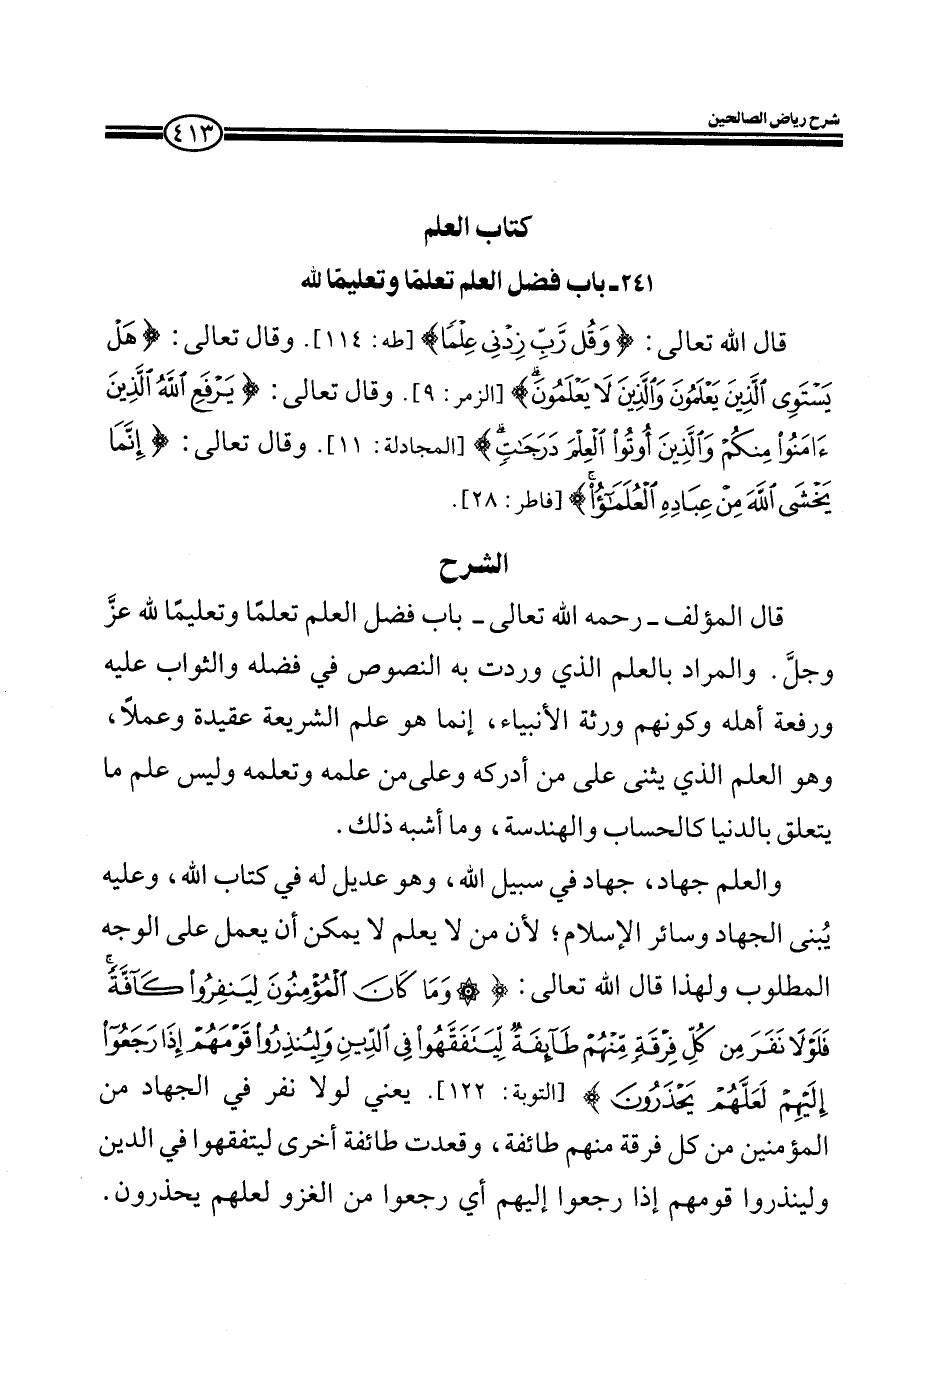 شرح رياض الصالحين
٤١٣
كتاب العلم
٢٤١ـ باب فضل العلم تعلمًا وتعليمًا لله
قال الله تعالى: ﴿وَقُل رَّبِّ زِدْنِي عِلْمًا﴾ [طه: ١١٤]. وقال تعالى: ﴿هَلْ
يَسْتَوِى ٱلَّذِينَ يَعْلَمُونَ وَٱلَّذِينَ لَا يَعْلَمُونَۗ﴾ [الزمر: ٩]. وقال تعالى: ﴿يَرْفَعِ ٱللَّهُ ٱلَّذِينَ
ءَامَنُوا۟ مِنكُمْ وَٱلَّذِينَ أُوتُوا۟ ٱلْعِلْمَ دَرَجَٰتٍۗ﴾ [المجادلة: ١١]. وقال تعالى: ﴿إِنَّمَا
يَخْشَى ٱللَّهَ مِنْ عِبَادِهِ ٱلْعُلَمَٰٓؤُا۟ۗ﴾ [فاطر: ٢٨].
الشرح
قال المؤلف ـ رحمه الله تعالى ـ باب فضل العلم تعلمًا وتعليمًا لله عزَّ
وجلَّ. والمراد بالعلم الذي وردت به النصوص في فضله والثواب عليه
ورفعة أهله وكونهم ورثة الأنبياء، إنما هو علم الشريعة عقيدة وعملاً،
وهو العلم الذي يثنى على من أدركه وعلى من علمه وتعلمه وليس علم ما
يتعلق بالدنيا كالحساب والهندسة، وما أشبه ذلك.
والعلم جهاد، جهاد في سبيل الله، وهو عديل له في كتاب الله، وعليه
يُبنى الجهاد وسائر الإسلام؛ لأن من لا يعلم لا يمكن أن يعمل على الوجه
المطلوب ولهذا قال الله تعالى: ﴿۞ وَمَا كَانَ ٱلْمُؤْمِنُونَ لِيَنفِرُوا۟ كَآفَّةًۚ
فَلَوْلَا نَفَرَ مِن كُلِّ فِرْقَةٍ مِّنْهُمْ طَآئِفَةٌ لِّيَتَفَقَّهُوا۟ فِى ٱلدِّينِ وَلِيُنذِرُوا۟ قَوْمَهُمْ إِذَا رَجَعُوٓا۟
إِلَيْهِمْ لَعَلَّهُمْ يَحْذَرُونَ﴾ [التوبة: ١٢٢]. يعني لولا نفر في الجهاد من
المؤمنين من كل فرقة منهم طائفة، وقعدت طائفة أخرى ليتفقهوا في الدين
ولينذروا قومهم إذا رجعوا إليهم أي رجعوا من الغزو لعلهم يحذرون.